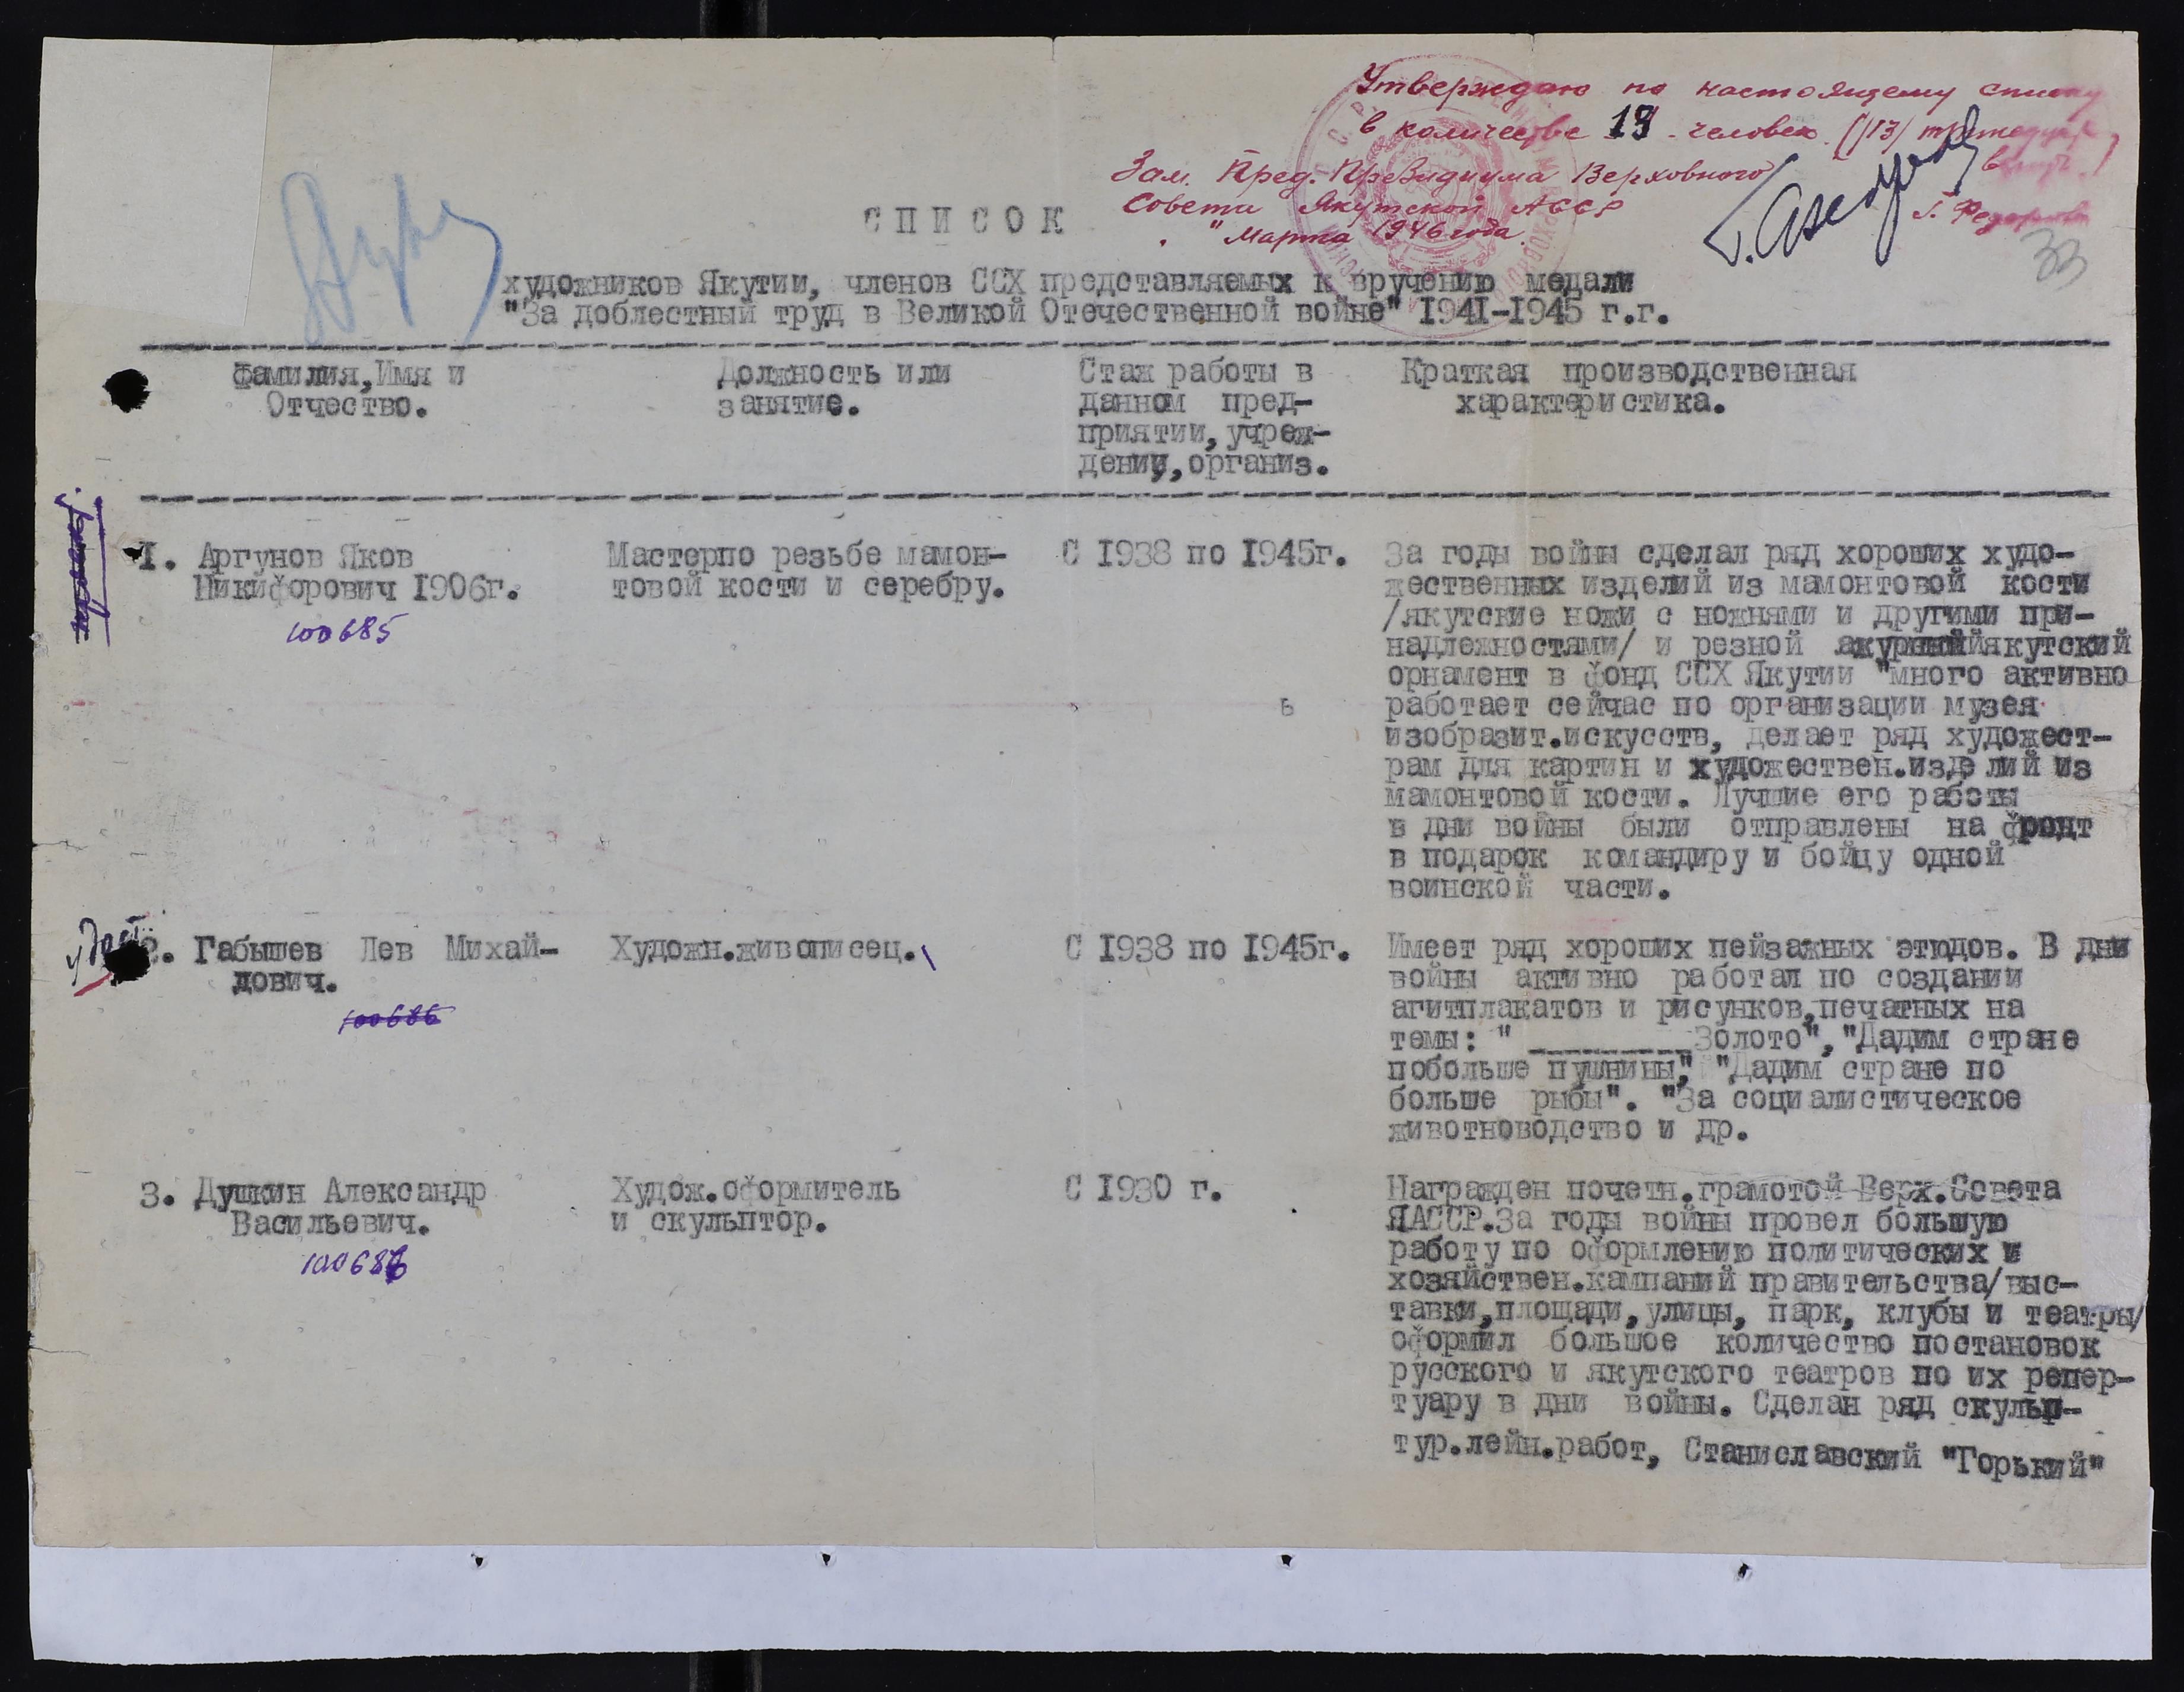 Утверждаю по настоящему списку
в количестве 13 человек (/13/ тринадцать
Зам. Пред. Президиума Верховного
Совета Якутской АССР
" Марта 1946 года.
г. Федоров
33
СПИСОК
художников Якутии, членов ССХ представляемых к вручению медали
"За доблестный труд в Великой Отечественной войне" 1941-1945 г.г.
Фамилия,Имя и
Отчество.
Должность или
занятие.
Стаж работы в
данном пред-
приятии,учреж-
дении,организ.
Краткая производственная
характеристика.
1. Аргунов Яков
Никифорович 1906г.
100685
Мастерпо резьбе мамон-
товой кости и серебру.
С 1938 по 1945г.
За годы войны сделал ряд хороших худо-
жественных изделий из мамонтовой кости
/якутские ножи с ножнями и другими при-
надлежностями/ и резной ажурныйякутский
орнамент в фонд ССХ Якутии "много активно
работает сейчас по организации музея
изобразит.искусств, делает ряд художест-
рам для картин и художествен.изделий из
мамонтовой кости. Лучшие его работы
в дни войны были отправлены на фронт
в подарок командиру и бойцу одной
воинской части.
2. Габышев Лев Михай-
лович.
100686
Художн.живописец.
С 1938 по 1945г.
Имеет ряд хороших пейзажных этюдов. В дни
войны активно работал по создании
агитплакатов и рисунков,печатных на
темы: " __________Золото","Дадим стране
побольше пушнины", "Дадим стране по
больше рыбы". "За социалистическое
животноводство и др.
3. Душкин Александр
Васильевич.
100686
Худож.оформитель
и скульптор.
С 1930 г.
Награжден почетн.грамотой Верх.Совета
ЯАССР.За годы войны провел большую
работу по оформлению политических и
хозяйствен.кампаний правительства/выс-
тавки,площади,улицы, парк, клубы и театры/
оформил большое количество постановок
русского и якутского театров по их репер-
туару в дни войны. Сделан ряд скульп-
тур.лейн.работ, Станиславский "Горький"